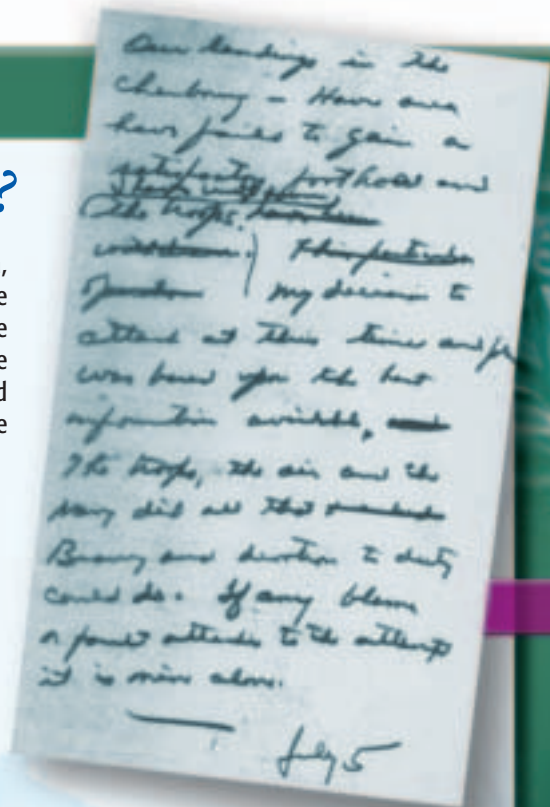 ?
,
e
e
e
d
e
Our landings in the
Cherbourg - Havre area
have failed to gain a
satisfactory foothold and
I have withdrawn
the troops. have been
withdrawn. This particular
operation my decision to
attack at this time and place
was based upon the best
information available, and
The troops, the air and the
Navy did all that
Bravery and devotion to duty
could do. If any blame
or fault attaches to the attempt
it is mine alone.
July 5